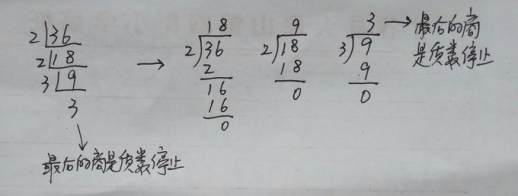 2 36
2 18
3 9
3
最后的商是质数停止
→
18
2 36
2
16
16
0
9
2 18
18
0
3
3 9
9
0
→ 最后的商
是质数停止